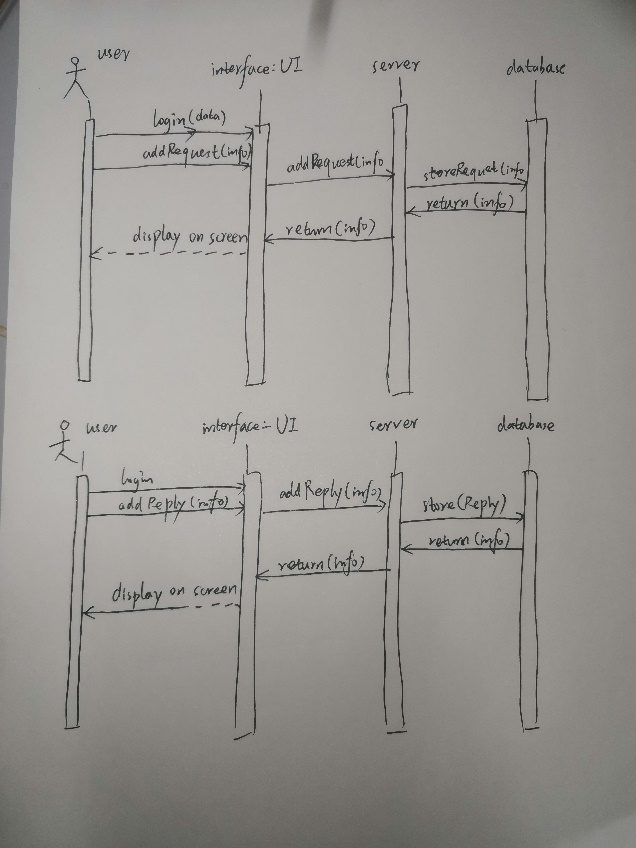 user
interface: UI
server
database
login(data)
addRequest(info)
addRequest(info
storeRequet(info
return(info)
return(info)
display on screen
user
interface:- UI
server
database
login
addReply(info)
addReply(info)
store(Reply)
return(info)
return(info)
display on screen